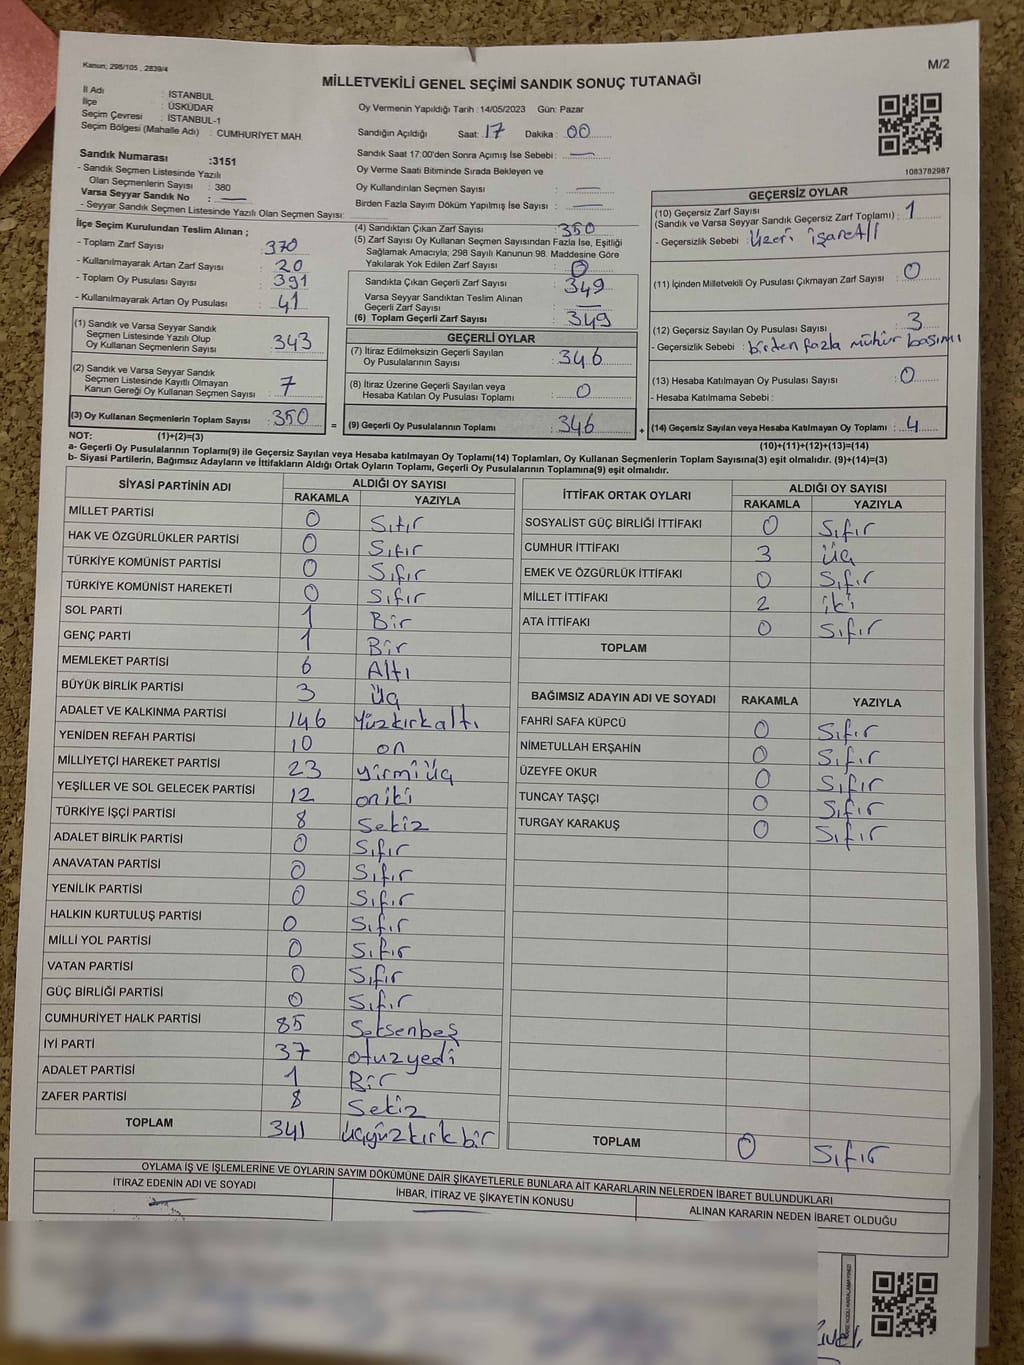 Kanun; 298/105 , 2839/4
M/2
MİLLETVEKİLİ GENEL SEÇİMİ SANDIK SONUÇ TUTANAĞI
İl Adı : İSTANBUL
İlçe : ÜSKÜDAR
Seçim Çevresi : İSTANBUL-1
Seçim Bölgesi (Mahalle Adı) : CUMHURİYET MAH.
Oy Vermenin Yapıldığı Tarih : 14/05/2023 Gün: Pazar
Sandığın Açıldığı Saat: 17 Dakika : 00
Sandık Saat 17:00'den Sonra Açımış İse Sebebi : —
Oy Verme Saati Bitiminde Sırada Bekleyen ve
Oy Kullandırılan Seçmen Sayısı : —
Birden Fazla Sayım Döküm Yapılmış İse Sayısı : —
1083782987
Sandık Numarası :3151
- Sandık Seçmen Listesinde Yazılı
Olan Seçmenlerin Sayısı : 380
Varsa Seyyar Sandık No : —
- Seyyar Sandık Seçmen Listesinde Yazılı Olan Seçmen Sayısı:
İlçe Seçim Kurulundan Teslim Alınan ;
- Toplam Zarf Sayısı : 370
- Kullanılmayarak Artan Zarf Sayısı : 20
- Toplam Oy Pusulası Sayısı : 391
- Kullanılmayarak Artan Oy Pusulası : 41
(1) Sandık ve Varsa Seyyar Sandık
Seçmen Listesinde Yazılı Olup
Oy Kullanan Seçmenlerin Sayısı : 343
(2) Sandık ve Varsa Seyyar Sandık
Seçmen Listesinde Kayıtlı Olmayan
Kanun Gereği Oy Kullanan Seçmen Sayısı : 7
(3) Oy Kullanan Seçmenlerin Toplam Sayısı : 350
(4) Sandıktan Çıkan Zarf Sayısı : 350
(5) Zarf Sayısı Oy Kullanan Seçmen Sayısından Fazla İse, Eşitliği
Sağlamak Amacıyla; 298 Sayılı Kanunun 98. Maddesine Göre
Yakılarak Yok Edilen Zarf Sayısı : 0
Sandıkta Çıkan Geçerli Zarf Sayısı : 349
Varsa Seyyar Sandıktan Teslim Alınan
Geçerli Zarf Sayısı : —
(6) Toplam Geçerli Zarf Sayısı : 349
GEÇERLİ OYLAR
(7) İtiraz Edilmeksizin Geçerli Sayılan
Oy Pusulalarının Sayısı : 346
(8) İtiraz Üzerine Geçerli Sayılan veya
Hesaba Katılan Oy Pusulası Toplamı : 0
= (9) Geçerli Oy Pusulalarının Toplamı : 346
GEÇERSİZ OYLAR
(10) Geçersiz Zarf Sayısı
(Sandık ve Varsa Seyyar Sandık Geçersiz Zarf Toplamı) : 1
- Geçersizlik Sebebi : Üzeri işaretli
(11) İçinden Milletvekili Oy Pusulası Çıkmayan Zarf Sayısı : 0
(12) Geçersiz Sayılan Oy Pusulası Sayısı : 3
- Geçersizlik Sebebi : birden fazla mühür basımı
(13) Hesaba Katılmayan Oy Pusulası Sayısı : 0
- Hesaba Katılmama Sebebi :
+ (14) Geçersiz Sayılan veya Hesaba Katılmayan Oy Toplamı : 4
NOT: (1)+(2)=(3)
(10)+(11)+(12)+(13)=(14)
a- Geçerli Oy Pusulalarının Toplamı(9) ile Geçersiz Sayılan veya Hesaba katılmayan Oy Toplamı(14) Toplamları, Oy Kullanan Seçmenlerin Toplam Sayısına(3) eşit olmalıdır. (9)+(14)=(3)
b- Siyasi Partilerin, Bağımsız Adayların ve İttifakların Aldığı Ortak Oyların Toplamı, Geçerli Oy Pusulalarının Toplamına(9) eşit olmalıdır.
SİYASİ PARTİNİN ADI ALDIĞI OY SAYISI
RAKAMLA YAZIYLA
MİLLET PARTİSİ 0 Sıfır
HAK VE ÖZGÜRLÜKLER PARTİSİ 0 Sıfır
TÜRKİYE KOMÜNİST PARTİSİ 0 Sıfır
TÜRKİYE KOMÜNİST HAREKETİ 0 Sıfır
SOL PARTİ 1 Bir
GENÇ PARTİ 1 Bir
MEMLEKET PARTİSİ 6 Altı
BÜYÜK BİRLİK PARTİSİ 3 Üç
ADALET VE KALKINMA PARTİSİ 146 Yüzkırkaltı
YENİDEN REFAH PARTİSİ 10 on
MİLLİYETÇİ HAREKET PARTİSİ 23 yirmiüç
YEŞİLLER VE SOL GELECEK PARTİSİ 12 oniki
TÜRKİYE İŞÇİ PARTİSİ 8 Sekiz
ADALET BİRLİK PARTİSİ 0 Sıfır
ANAVATAN PARTİSİ 0 Sıfır
YENİLİK PARTİSİ 0 Sıfır
HALKIN KURTULUŞ PARTİSİ 0 Sıfır
MİLLİ YOL PARTİSİ 0 Sıfır
VATAN PARTİSİ 0 Sıfır
GÜÇ BİRLİĞİ PARTİSİ 0 Sıfır
CUMHURİYET HALK PARTİSİ 85 Seksenbeş
İYİ PARTİ 37 otuzyedi
ADALET PARTİSİ 1 Bir
ZAFER PARTİSİ 8 Sekiz
TOPLAM 341 üçyüzkırkbir
İTTİFAK ORTAK OYLARI ALDIĞI OY SAYISI
RAKAMLA YAZIYLA
SOSYALİST GÜÇ BİRLİĞİ İTTİFAKI 0 Sıfır
CUMHUR İTTİFAKI 3 üç
EMEK VE ÖZGÜRLÜK İTTİFAKI 0 Sıfır
MİLLET İTTİFAKI 2 iki
ATA İTTİFAKI 0 Sıfır
TOPLAM
BAĞIMSIZ ADAYIN ADI VE SOYADI RAKAMLA YAZIYLA
FAHRİ SAFA KÜPCÜ 0 Sıfır
NİMETULLAH ERŞAHİN 0 Sıfır
ÜZEYFE OKUR 0 Sıfır
TUNCAY TAŞÇI 0 Sıfır
TURGAY KARAKUŞ 0 Sıfır
TOPLAM 0 Sıfır
OYLAMA İŞ VE İŞLEMLERİNE VE OYLARIN SAYIM DÖKÜMÜNE DAİR ŞİKAYETLERLE BUNLARA AİT KARARLARIN NELERDEN İBARET BULUNDUKLARI
İTİRAZ EDENİN ADI VE SOYADI İHBAR, İTİRAZ VE ŞİKAYETİN KONUSU ALINAN KARARIN NEDEN İBARET OLDUĞU